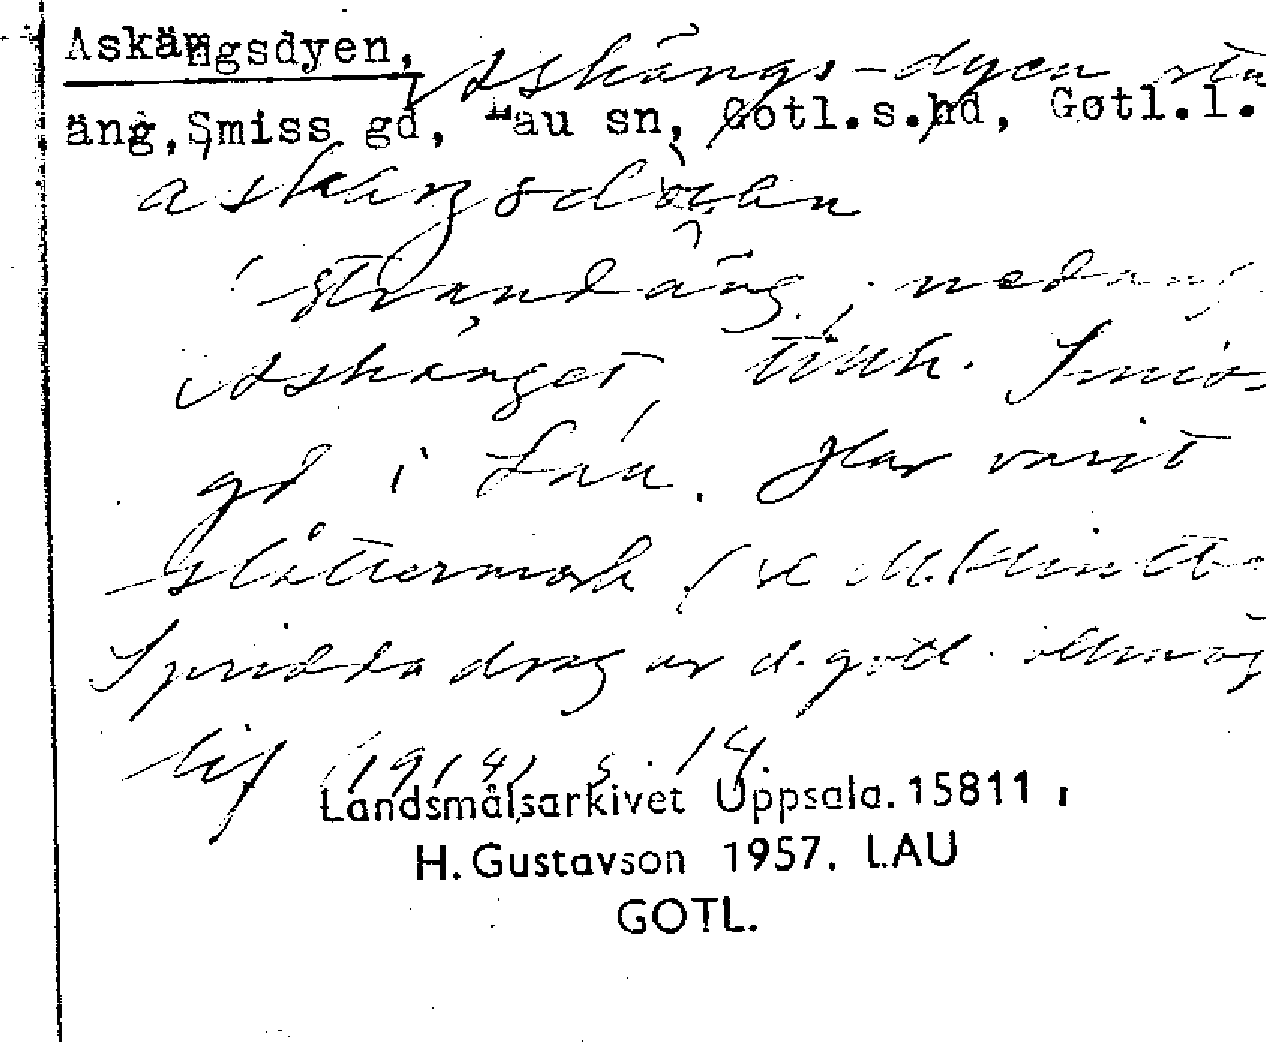 Askängsdyen, Askängs-dyen
äng, Smiss gd, Lau sn, Gotl.s.hd, Gotl.l.
strandäng, nedanf
Askänget tillh. Smiss
gd i Lau. Har varit
slåttermark (se M. Klintb
Spridda drag ur d. gotl. allmog
lif (1914) s. 14.
Landsmålsarkivet Uppsala. 15811
H. Gustavson 1957. LAU
GOTL.